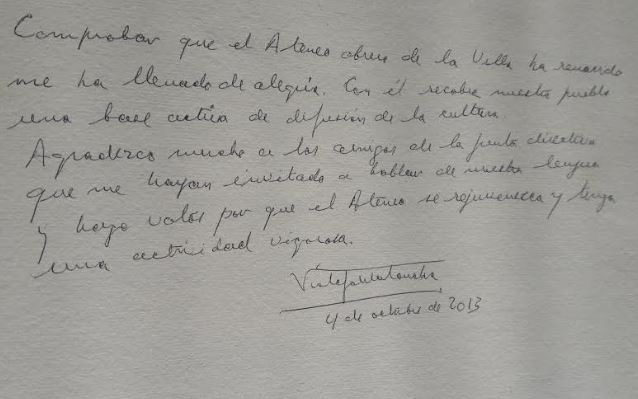 Comprobar que el Ateneo obrero de la Villa ha renacido
me ha llenado de alegría. Con él recobra nuestro pueblo
una base activa de difusión de la cultura.
Agradezco mucho a los amigos de la junta directiva
que me hayan invitado a hablar de nuestra lengua
y hago votos por que el Ateneo se rejuvenezca y tenga
una actividad vigorosa.
4 de octubre de 2013